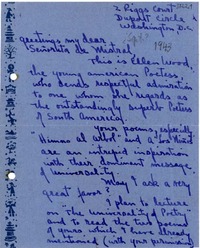 2 Biggs Court
Dupont Circle
Washington D.C.
1943
Greetings my dear
Señorita de Mistral
This is Ellen Wood,
the young american Poetess,
who sends respectful admiration
to one whom she regards as
the outstandingly superb Poetess
of South America.
Your poems, especially
"Himno al Arbol" and
are an intrepid inspiration
with their dominant message
of Universality.
May I ask a very
great favor?
I plan to lecture
on "The Universality of Poetry"
and to read the two poems
of yours which I have already
mentioned (with your permission)